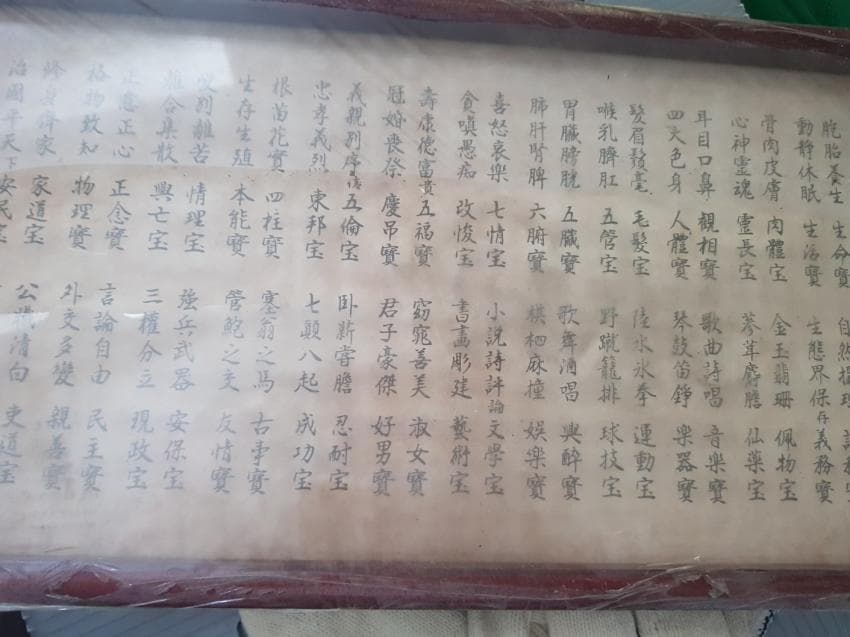 胞胎養生 生命寶 自然攝理
動靜休眠 生活寶 生態界保存 義務寶
骨肉皮膚 肉體宝 金玉翡珊 佩物宝
心神靈魂 靈長宝 蔘茸麝膽 仙藥宝
耳目口鼻 観相寶 歌曲詩唱 音楽寶
四大色身 人體寶 琴鼓笛錚 楽器寶
髮眉鬚毫 毛髮宝 陸水氷拳 運動宝
喉乳臍肛 五管宝 野蹴籠排 球技宝
胃臟膀胱 五臟寶 歌舞酒唱 興醉寶
肺肝腎脾 六腑寶 棋柶麻撞 娯楽寶
喜怒哀樂 七情宝 小説詩評論 文學宝
貪嗔愚痴 改悛宝 書畫彫建 藝術宝
壽康德富貴 五福寶 窈窕善美 淑女寶
冠婚喪祭 慶吊寶 君子豪傑 好男寶
義親別序信 五倫宝 臥薪嘗膽 忍耐宝
忠孝義烈 東邦宝 七顛八起 成功宝
根苗花實 四柱寶 塞翁之馬 古事寶
生存生殖 本能寶 管鮑之交 友情寶
愛別離苦 情理宝 強兵武器 安保宝
離合集散 興亡宝 三權分立 現政宝
正意正心 正念寶 言論自由 民主寶
格物致知 物理寶 外交多變 親善寶
修身齊家 家道宝 公職清白 吏道宝
治國平天下 安民宝